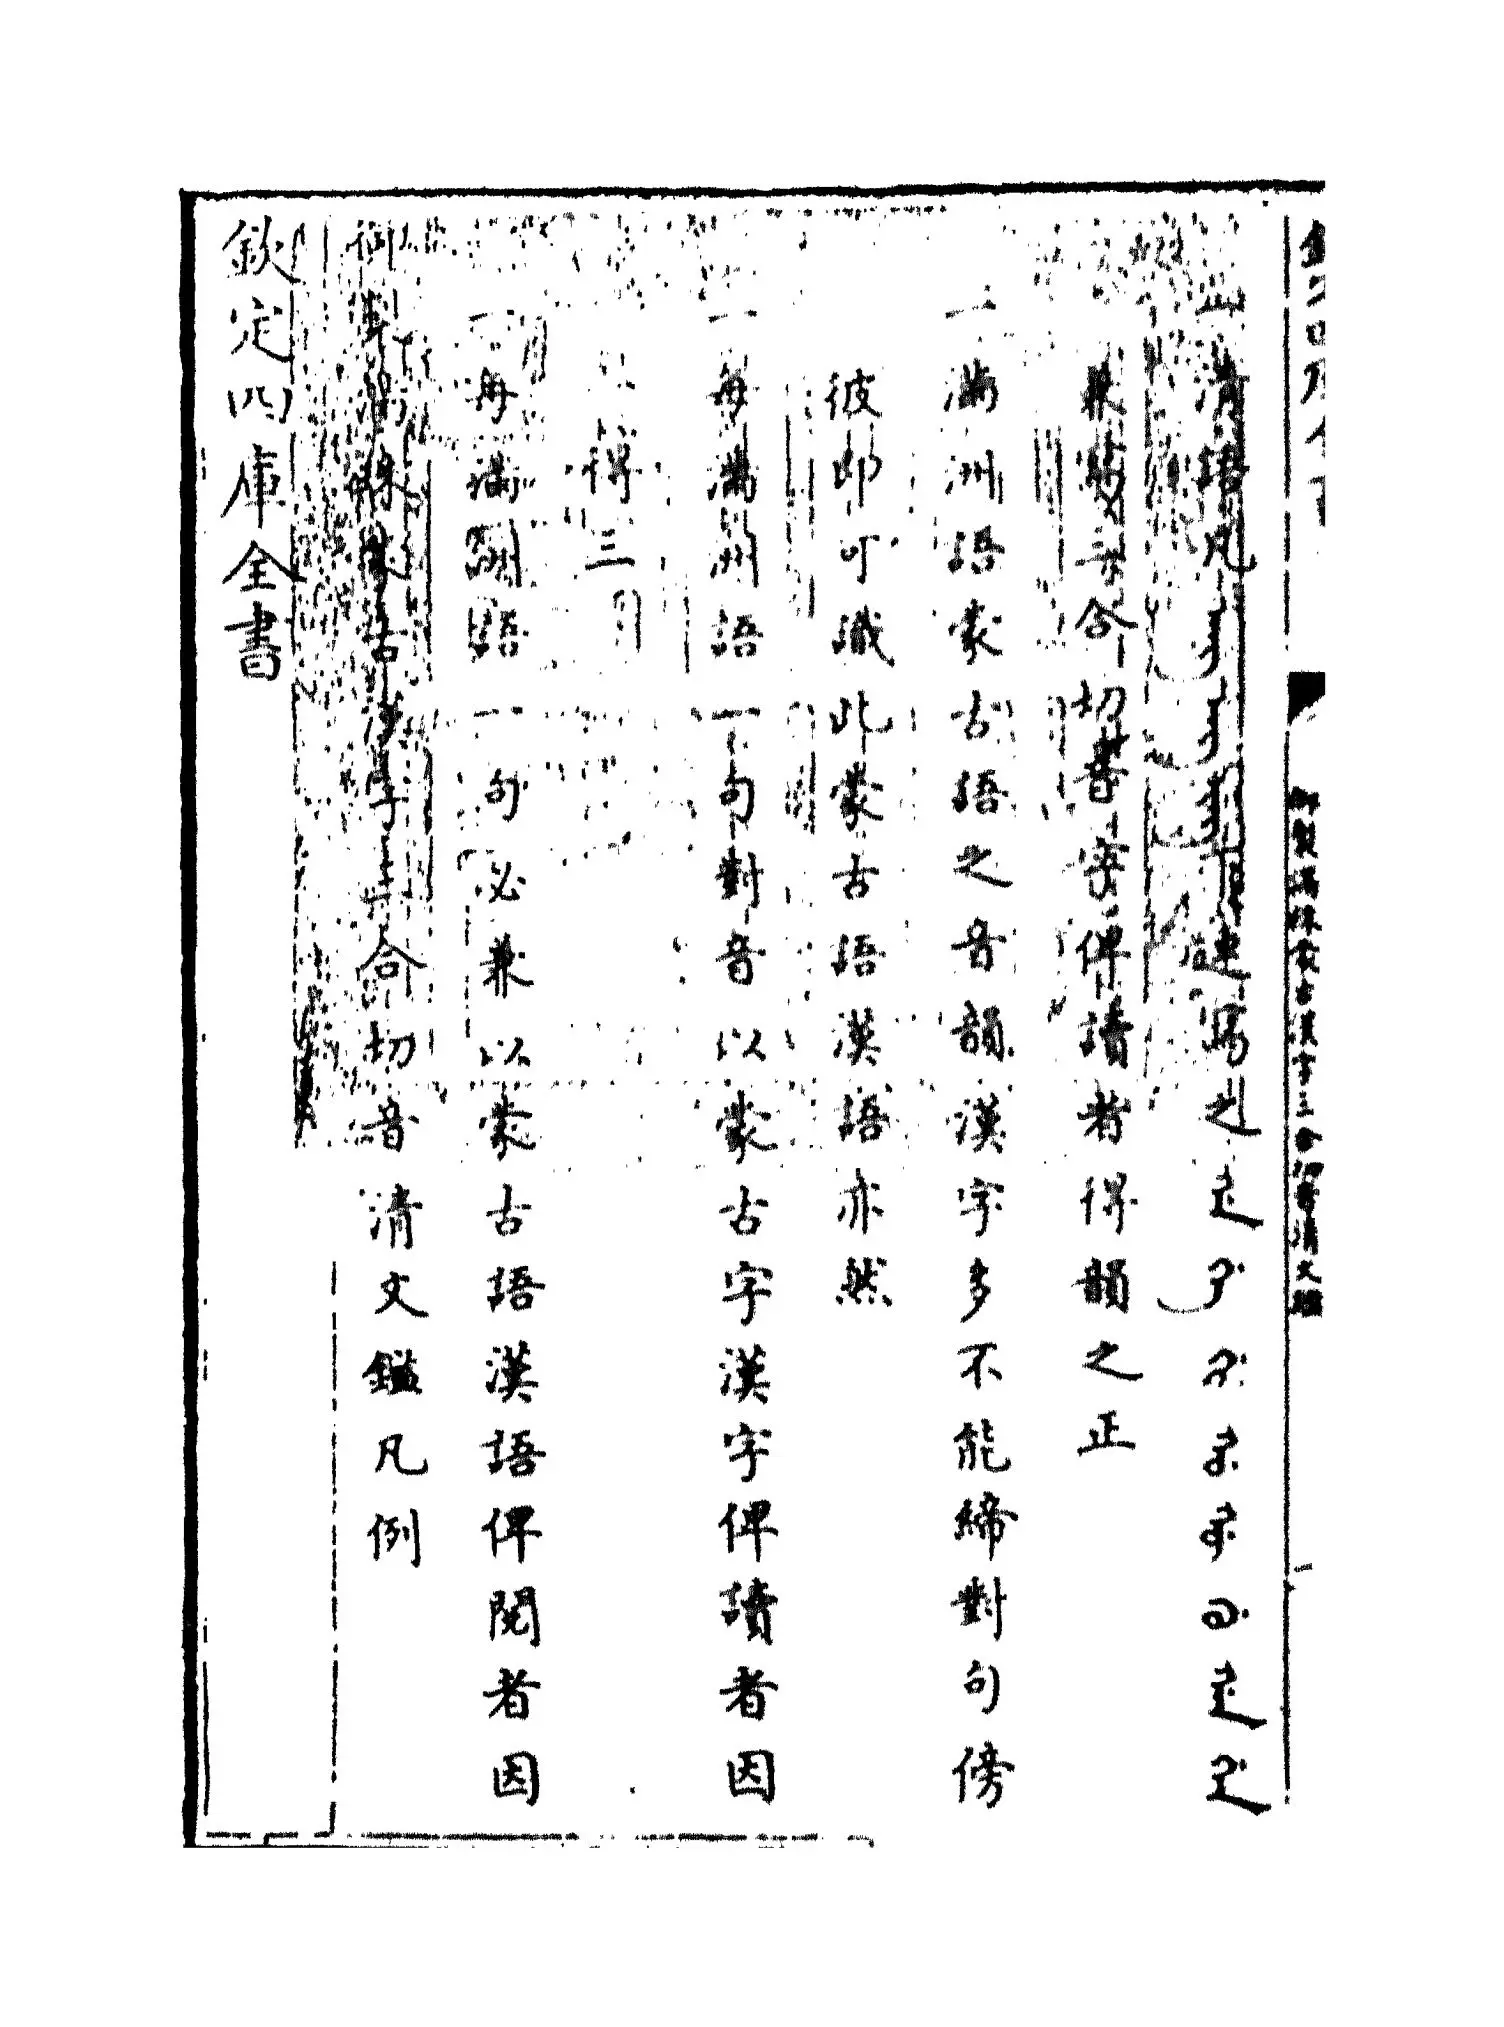 欽定四庫全書
御製滿珠蒙古漢字三合切音清文鑑凡例
一每滿洲語一句必兼以蒙古語漢語俾閱者因
一得三
一每滿洲語一句對音以蒙古字漢字俾讀者因
彼即可識此蒙古語漢語亦然
一滿洲語蒙古語之音韻漢字多不能締對句傍
兼書三合切音字俾讀者得韻之正
一清語凡連寫之
御製滿珠蒙古漢字三合切音清文鑑